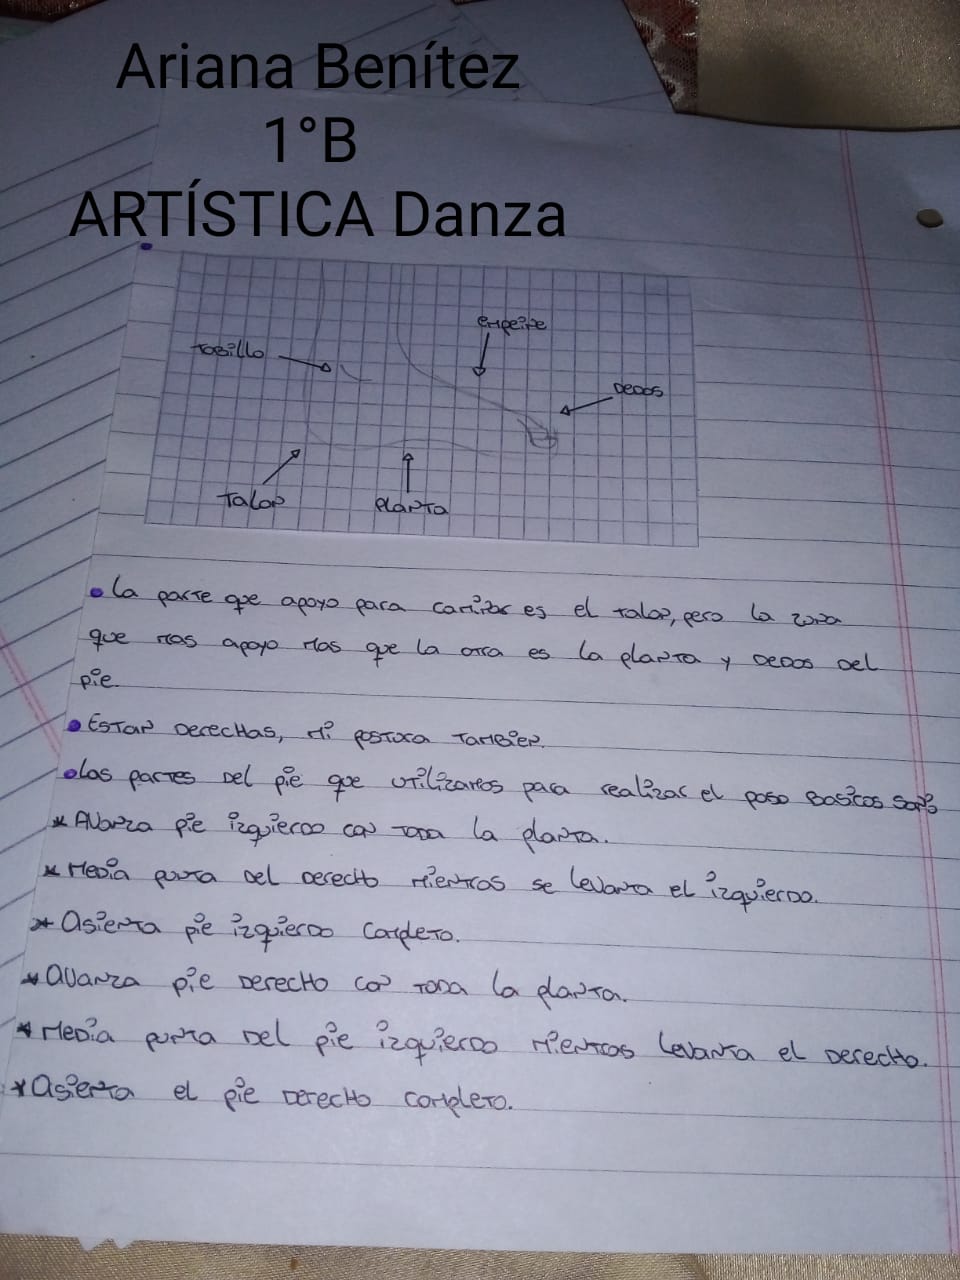 Ariana Benítez
1°B
ARTÍSTICA Danza
empeine
tobillo
Dedos
talon
planta
• La parte que apoyo para caminar es el talon, pero la zona
que mas apoyo mas que la otra es la planta y Dedos Del
pie.
• Estan Derechas, mi postura tambien.
• Las partes Del pie que utilizamos para realizar el paso Basicos son:
* Avanza pie izquierdo con toda la planta.
* Media punta Del Derecho mientras se levanta el izquierdo.
* Asienta pie izquierdo completo.
* Avanza pie Derecho con toda la planta.
* Media punta Del pie izquierdo mientras levanta el Derecho.
* Asienta el pie Derecho completo.